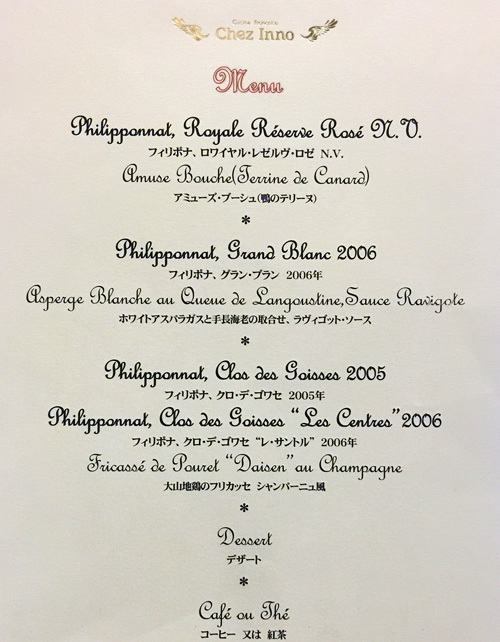 Cuisine Française
Chez Inno
Menu
Philipponnat, Royale Réserve Rosé N.V.
フィリポナ、ロワイヤル・レゼルヴ・ロゼ N.V.
Amuse Bouche(Terrine de Canard)
アミューズ・ブーシュ(鴨のテリーヌ)
*
Philipponnat, Grand Blanc 2006
フィリポナ、グラン・ブラン 2006年
Asperge Blanche au Queue de Langoustine,Sauce Ravigote
ホワイトアスパラガスと手長海老の取合せ、ラヴィゴット・ソース
*
Philipponnat, Clos des Goisses 2005
フィリポナ、クロ・デ・ゴワセ 2005年
Philipponnat, Clos des Goisses "Les Centres"2006
フィリポナ、クロ・デ・ゴワセ "レ・サントル" 2006年
Fricassé de Pouret "Daisen"au Champagne
大山地鶏のフリカッセ シャンパーニュ風
*
Dessert
デザート
*
Café ou Thé
コーヒー 又は 紅茶